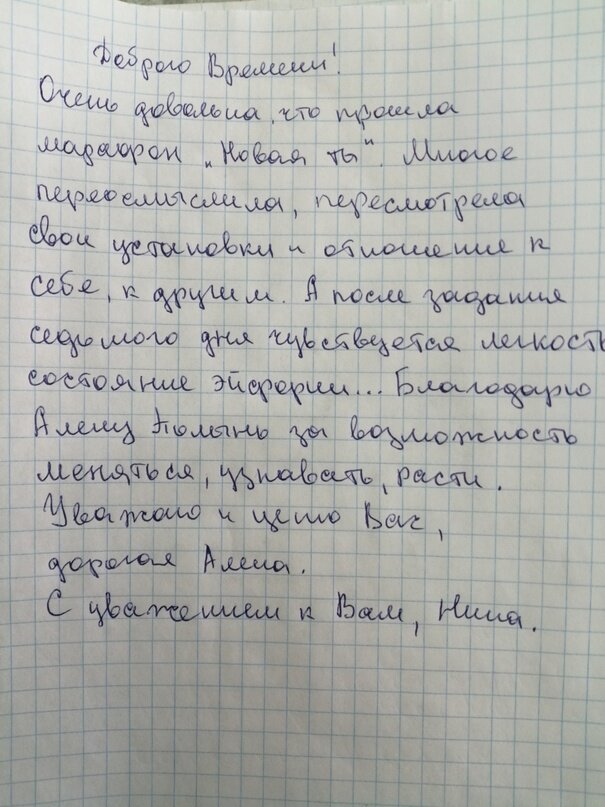 Доброго Времени!
Очень довольна, что прошла
марафон „Новая ты". Многое
переосмыслила, пересмотрела
свои установки и отношение к
себе, к другим. А после задания
седьмого дня чувствуется легкость
состояние эйфории... Благодарю
Алену Полынь за возможность
меняться, узнавать, расти.
Уважаю и ценю Вас,
дорогая Алена.
С уважением к Вам, Нина.